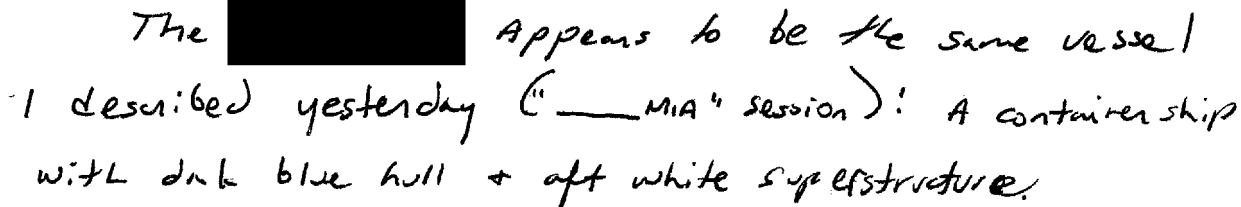 The Appears to be the same vessel
I described yesterday ("____MIA" session): A container ship
with dark blue hull + aft white superstructure.